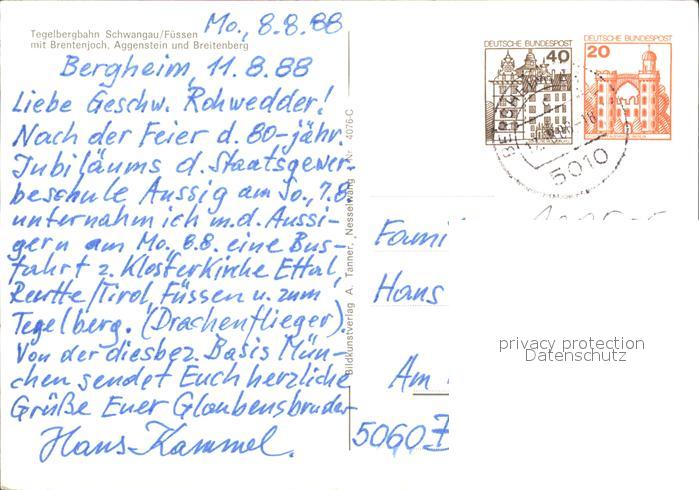 Tegelbergbahn Schwangau/Füssen
mit Brentenjoch, Aggenstein und Breitenberg
Mo., 8.8.88
Bergheim, 11.8.88
Liebe Geschw. Rohwedder!
Nach der Feier d. 80-jähr.
Jubiläums d. Staatsgewer-
beschule Aussig am So., 7.8.
unternahm ich m.d. Aussi-
gern am Mo., 8.8. eine Bus-
fahrt z. Klosterkirche Ettal,
Reutte/Tirol, Füssen u. zum
Tegelberg. (Drachenflieger).
Von der diesbez. Basis Mün-
chen sendet Euch herzliche
Grüße Euer Glaubensbruder
Hans Kammel.
Bildkunstverlag A. Tanner, Nesselwang 4076-C
DEUTSCHE BUNDESPOST
40
DEUTSCHE BUNDESPOST
20
5010
Fami
Hans
Am
5060
privacy protection
Datenschutz